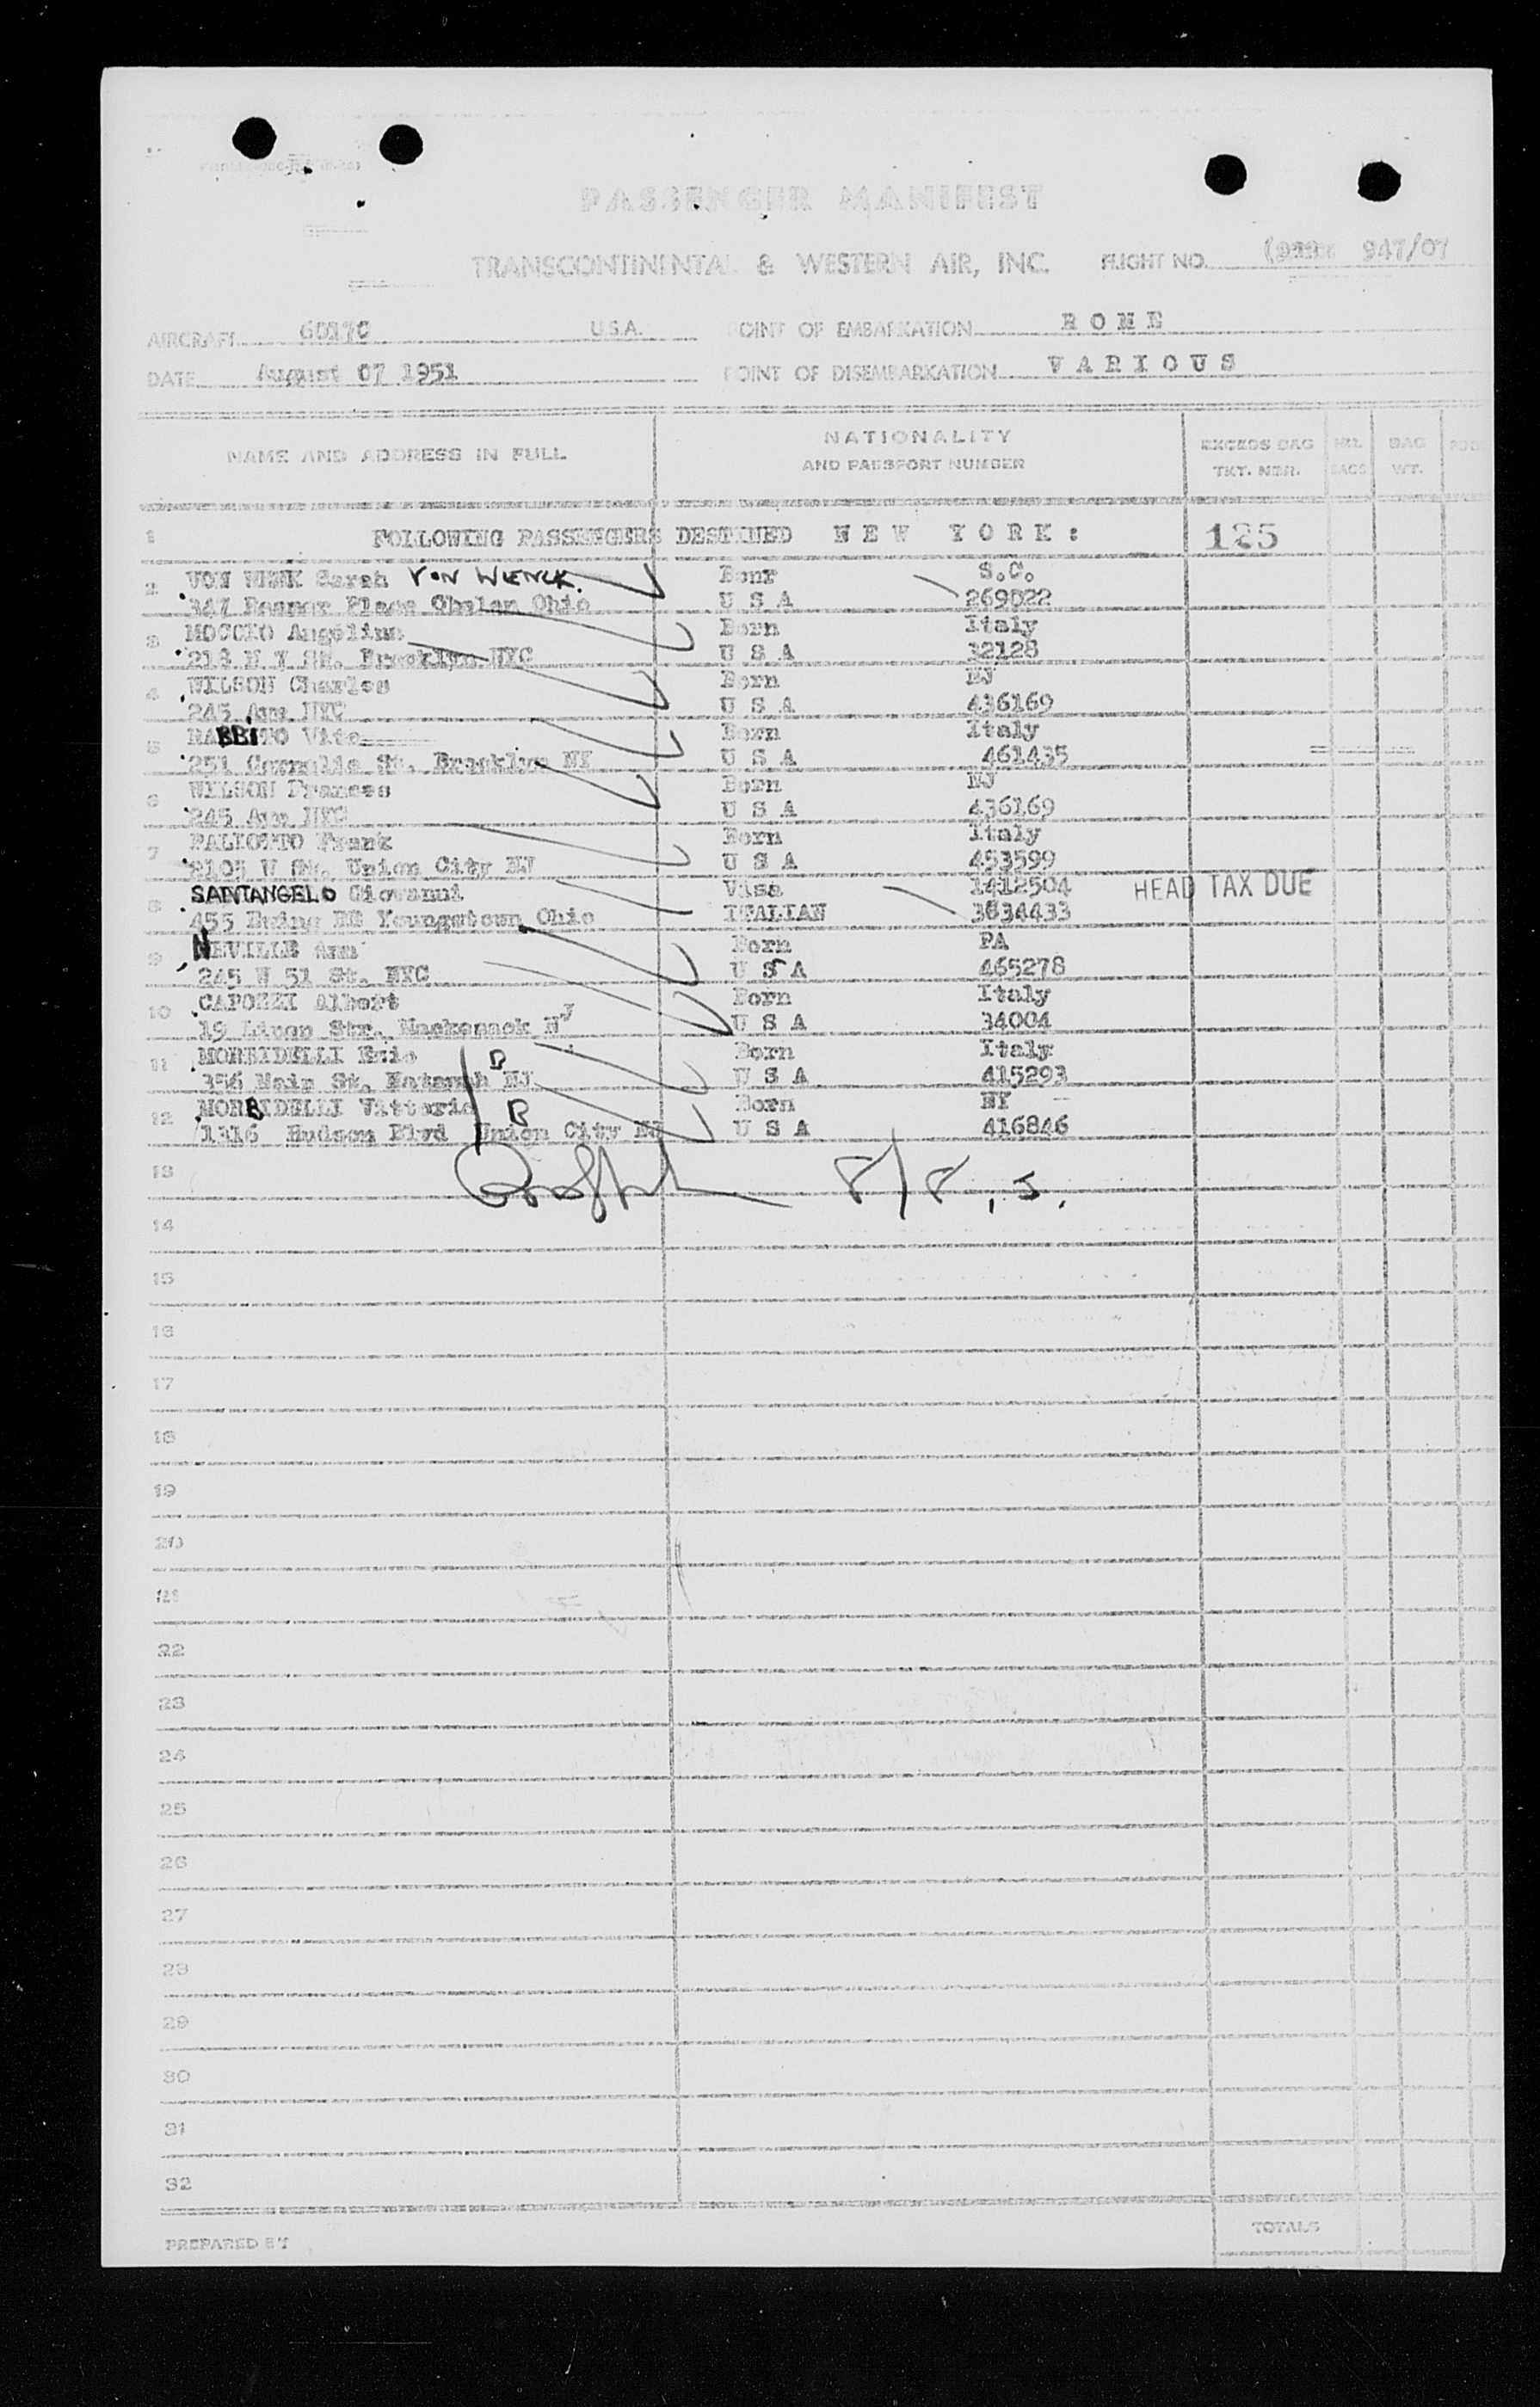 PASSENGER MANIFEST
TRANSCONTINENTAL & WESTERN AIR, INC. FLIGHT NO. 947/07
AIRCRAFT U.S.A. POINT OF EMBARKATION R O M E
DATE August 07 1951 POINT OF DISEMBARKATION V A R I O U S
NAME AND ADDRESS IN FULL
NATIONALITY
AND PASSPORT NUMBER
EXCESS BAG
TKT. NBR.
BAG
WT.
1 FOLLOWING PASSENGERS DESTINED N E W Y O R K : 125
2 VON WENK Sarah VON WIENCK. Bonr S.C.
347 Place Ohio U S A 269022
3 Angelina Born Italy
218 St. Brooklyn NYC U S A 32128
4 WILSON Charles Born NJ
245 NYC U S A 436169
5 RABBITO Vito Born Italy
251 St. Brooklyn NY U S A 461435
6 WILSON Frances Born NJ
245 NYC U S A 436169
7 Frank Born Italy
2105 Union City NJ U S A 453599
8 SANTANGELO Giovanni Visa 1412504 HEAD TAX DUE
455 Youngstown Ohio ITALIAN 3834433
9 NEVILLE Ann Born PA
245 W 51 St. NYC U S A 465278
10 CAPOZZI Albert Born Italy
19 Str. Hackensack NJ U S A 34004
11 MORBIDELLI B Born Italy
356 Main St. NJ U S A 415293
12 MORBIDELLI Vittorio B Born NY
1316 Hudson Blvd Union City NJ U S A 416846
13 8/8
14
15
16
17
18
19
20
22
23
24
25
26
27
28
29
30
31
32
PREPARED BY TOTALS